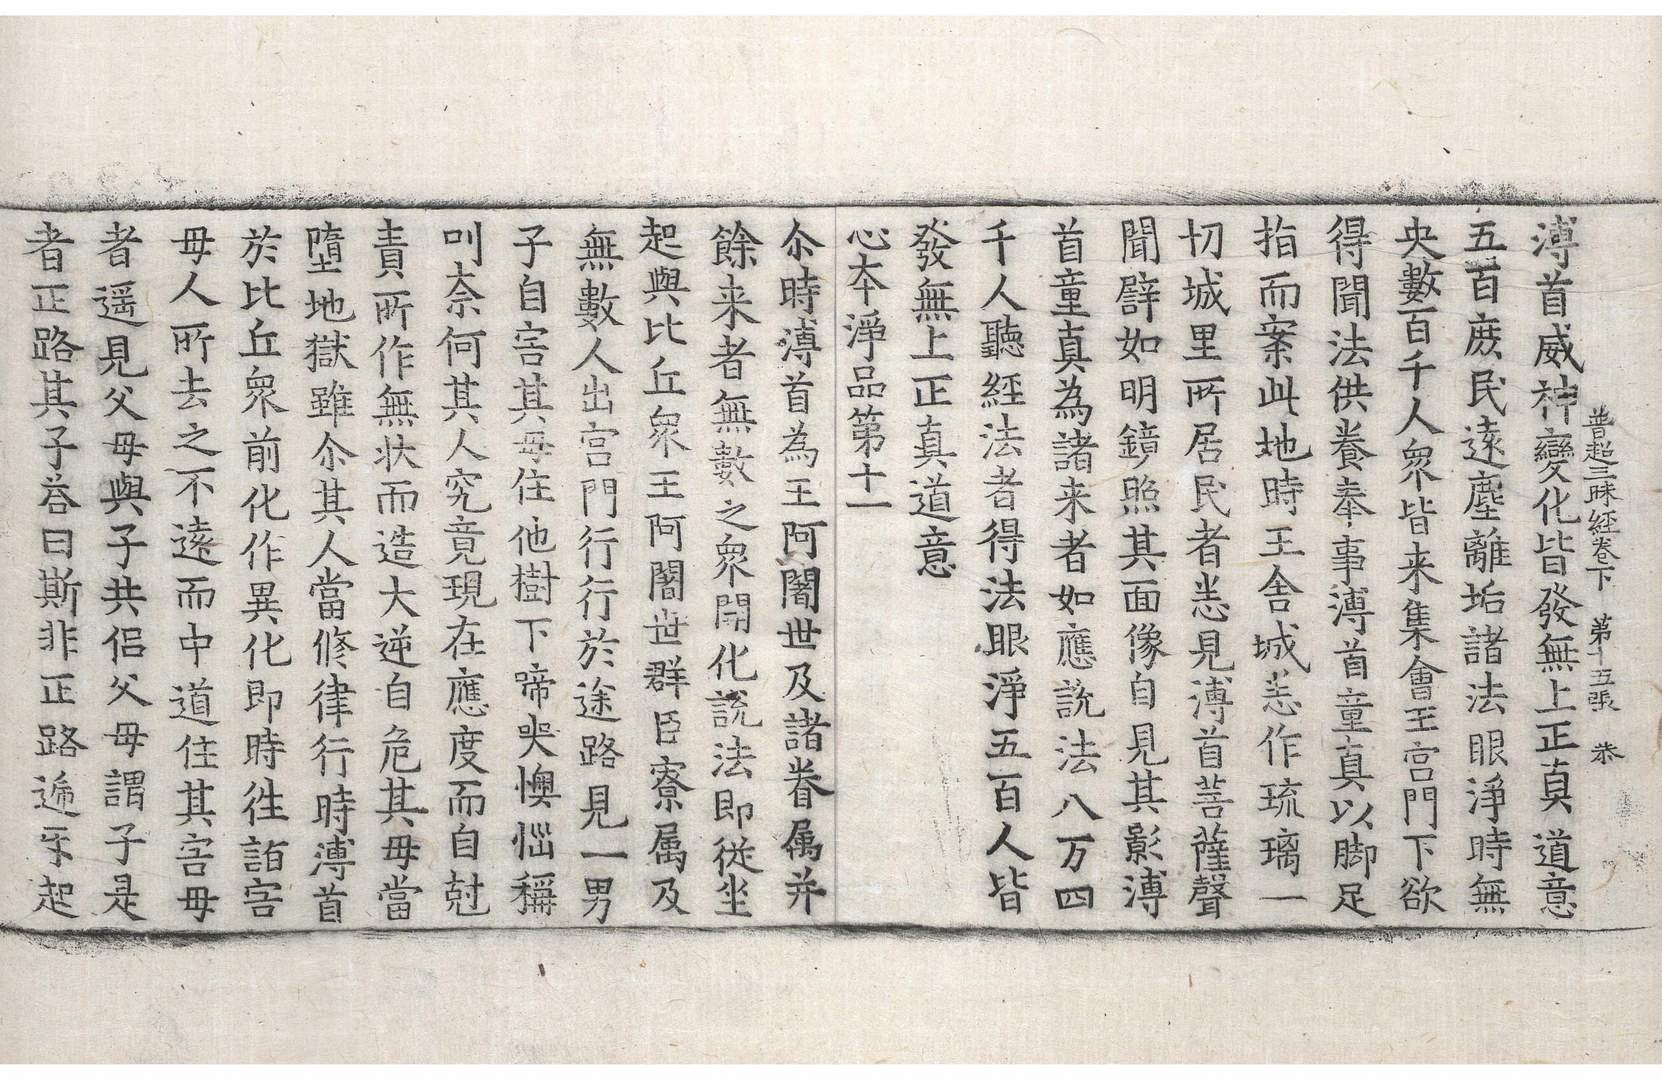 普超三昧經卷下　第十五張　恭
溥首威神變化皆發無上正真道意
五百庶民遠塵離垢諸法眼淨時無
央數百千人衆皆来集會王宫門下欲
得聞法供養奉事溥首童真以脚足
指而案此地時王舍城悉作琉璃一
切城里所居民者悉見溥首菩薩聲
聞辟如明鏡照其面像自見其影溥
首童真為諸来者如應説法八万四
千人聽經法者得法眼淨五百人皆
發無上正真道意
心本淨品第十一
尒時溥首為王阿闍世及諸眷属并
餘来者無數之衆開化説法即従坐
起與比丘衆王阿闍世群臣寮属及
無數人出宫門行行於途路見一男
子自害其母住他樹下啼哭懊惱稱
叫奈何其人究竟現在應度而自尅
責所作無状而造大逆自危其母當
墮地獄雖尒其人當修律行時溥首
於比丘衆前化作異化即時徃詣害
母人所去之不遠而中道住其害母
者遥見父母與子共侶父母謂子是
者正路其子荅曰斯非正路遞互起